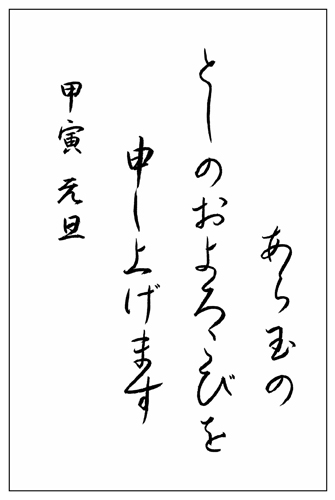 あら玉の
としのおよろゝびを
申し上げます
甲寅 元旦